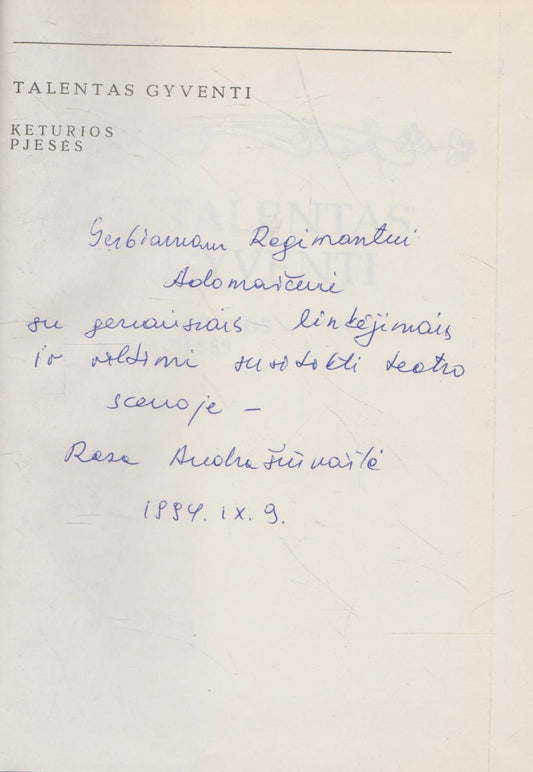 TALENTAS GYVENTI
KETURIOS
PJESĖS
TALENTAS
GYVENTI
Gerbiamam Regimantui
Adomaičiui
su geriausiais linkėjimais
ir viltimi susitikti teatro
scenoje –
Rasa Andrašiūnaitė
1994. IX. 9.